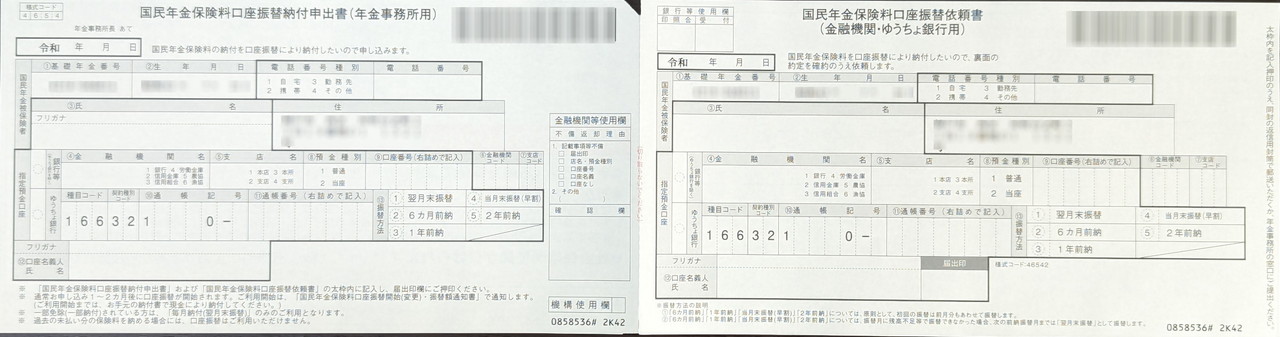 様式コード
4 6 5 4
国民年金保険料口座振替納付申出書(年金事務所用)
年金事務所長 あて
令和 年 月 日
国民年金保険料の納付を口座振替により納付したいので申し込みます。
国民年金被保険者
①基礎年金番号
②生年月日
電話番号種別
電話番号
1 自宅 3 勤務先
2 携帯 4 その他
③氏名
住所
フリガナ
指定預金口座
銀行等
④金融機関名
⑤支店名
⑧預金種別
⑨口座番号(右詰めで記入)
⑥金融機関コード
⑦支店コード
1 銀行 4 労働金庫
2 信用金庫 5 農協
3 信用組合 6 漁協
1 本店 3 本所
2 支店 4 支所
1 普通
2 当座
ゆうちょ銀行
種目コード
契約種別コード
⑩通帳記号
⑪通帳番号(右詰めで記入)
1 6 6 3 2 1 0 −
⑬振替方法
1 翌月末振替
4 当月末振替(早割)
2 6カ月前納
5 2年前納
3 1年前納
フリガナ
⑫口座名義人
氏名
金融機関等使用欄
不備返却理由
1. 記載事項等不備
届出印
店名・預金種別
口座番号
口座名義
口座なし
2. その他
( )
確認欄
※ 「国民年金保険料口座振替納付申出書」および「国民年金保険料口座振替依頼書」の太枠内に記入し、届出印欄にご押印ください。
※ 通常お申し込み1~2カ月後に口座振替が開始されます。ご利用開始は、「国民年金保険料口座振替開始(変更)・振替額通知書」で通知します。
(ご利用開始までは、お手元の納付書で現金により納付してください。)
※ 一部免除(一部納付)されている方は、「毎月納付(翌月末振替)」のみのご利用となります。
※ 過去の未払い分の保険料を納める場合には、口座振替はご利用いただけません。
機構使用欄
0858536# 2K42
銀行等使用欄
印鑑照合 受付
国民年金保険料口座振替依頼書
(金融機関・ゆうちょ銀行用)
令和 年 月 日
国民年金保険料を口座振替により納付したいので、裏面の
約定を確約のうえ依頼します。
国民年金被保険者
①基礎年金番号
②生年月日
電話番号種別
電話番号
1 自宅 3 勤務先
2 携帯 4 その他
③氏名
住所
フリガナ
指定預金口座
銀行等
④金融機関名
⑤支店名
⑧預金種別
⑨口座番号(右詰めで記入)
⑥金融機関コード
⑦支店コード
1 銀行 4 労働金庫
2 信用金庫 5 農協
3 信用組合 6 漁協
1 本店 3 本所
2 支店 4 支所
1 普通
2 当座
ゆうちょ銀行
種目コード
契約種別コード
⑩通帳記号
⑪通帳番号(右詰めで記入)
1 6 6 3 2 1 0 −
⑬振替方法
1 翌月末振替
4 当月末振替(早割)
2 6カ月前納
5 2年前納
3 1年前納
フリガナ
⑫口座名義人
氏名
届出印
様式コード:46542
※振替方法の説明
①「6カ月前納」「1年前納」「当月末振替(早割)」「2年前納」については、原則として、初回の振替は前月分もあわせて振替します。
②「6カ月前納」「1年前納」「当月末振替(早割)」「2年前納」については、振替月に残高不足等で振替できなかった場合、次の前納振替月までは「翌月末振替」として振替します。
0858536# 2K42
太枠内を記入押印のうえ、同封の返信用封筒で郵送いただくか、年金事務所の窓口にご提出ください。